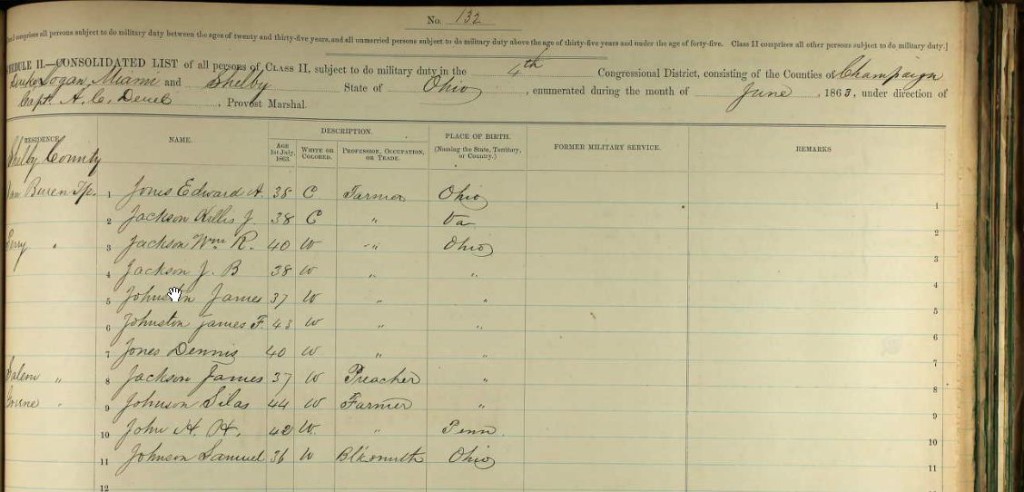 No. 132
comprises all persons subject to do military duty between the ages of twenty and thirty-five years, and all unmarried persons subject to do military duty above the age of thirty-five years and under the age of forty-five. Class II comprises all other persons subject to do military duty.]
DULE II.—CONSOLIDATED LIST of all persons of CLASS II, subject to do military duty in the 4th Congressional District, consisting of the Counties of Champaign
Logan, Miami and Shelby State of Ohio, enumerated during the month of June, 1863, under direction of
Capt. A. C. Deuel, Provost Marshal.
RESIDENCE. NAME. DESCRIPTION. PLACE OF BIRTH. FORMER MILITARY SERVICE. REMARKS
AGE 1st July, 1863. WHITE OR COLORED. PROFESSION, OCCUPATION, OR TRADE. (Naming the State, Territory, or Country.)
Shelby County
Van Buren Tp. 1 Jones Edward A. 38 C Farmer Ohio 1
2 Jackson Willis J. 38 C " Va 2
Perry " 3 Jackson Wm R. 40 W " Ohio 3
4 Jackson J. B 38 W " " 4
5 Johnston James 37 W " " 5
6 Johnston James F. 43 W " " 6
7 Jones Dennis 40 W " " 7
Salem " 8 Jackson James 37 W Preacher " 8
" 9 Johnson Silas 44 W Farmer " 9
10 John H. H. 42 W. " Penn. 10
11 Johnson Samuel 36 W Blksmith Ohio 11
12